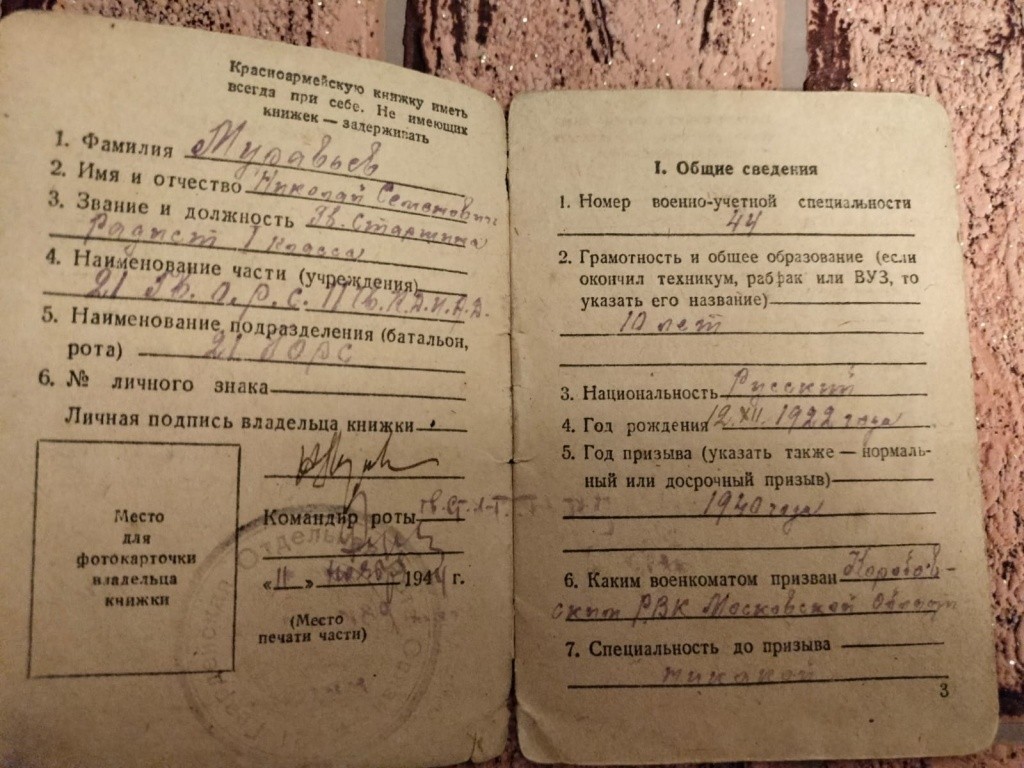 Красноармейскую книжку иметь
всегда при себе. Не имеющих
книжек — задерживать
1. Фамилия Муравьев
2. Имя и отчество Николай Семенович
3. Звание и должность Гв. Старшина
Радист 1 класса
4. Наименование части (учреждения)
21 Гв. о.р.с.
5. Наименование подразделения (батальон,
рота) 21 ГОРС
6. № личного знака
Личная подпись владельца книжки
Место
для
фотокарточки
владельца
книжки
Командир роты Гв. Ст. Л-т.
«11» 1944 г.
(Место
печати части)
I. Общие сведения
1. Номер военно-учетной специальности
44
2. Грамотность и общее образование (если
окончил техникум, рабфак или ВУЗ, то
указать его название)
10 лет
3. Национальность Русский
4. Год рождения 12.XII.1922 года
5. Год призыва (указать также — нормаль-
ный или досрочный призыв)
1940 года
6. Каким военкоматом призван
ским РВК Московской Области
7. Специальность до призыва
никакой
3